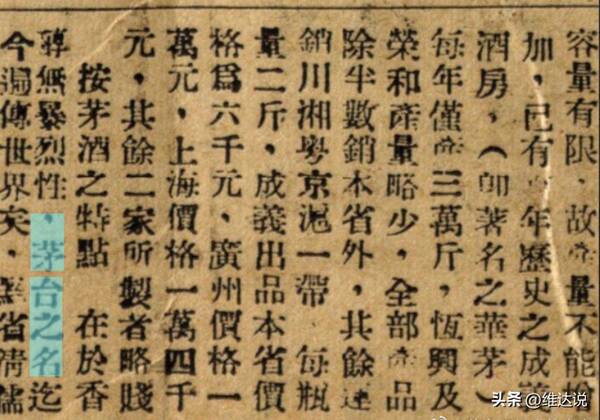 容量有限，故產量不能增
加，已有　年歷史之成義
酒房，（卽著名之華茅）
每年僅產三萬斤，恆興及
榮和產量略少，全部產品
除半數銷本省外，其餘運
銷川湘粵京滬一帶　每瓶
量二斤，成義出品本省價
格爲六千元，廣州價格一
萬元，上海價格一萬四千
元，其餘二家所製者略賤
按茅酒之特點　在於香
無暴烈性，茅台之名迄
今遍傳世界矣，省清儒
头条@维达说